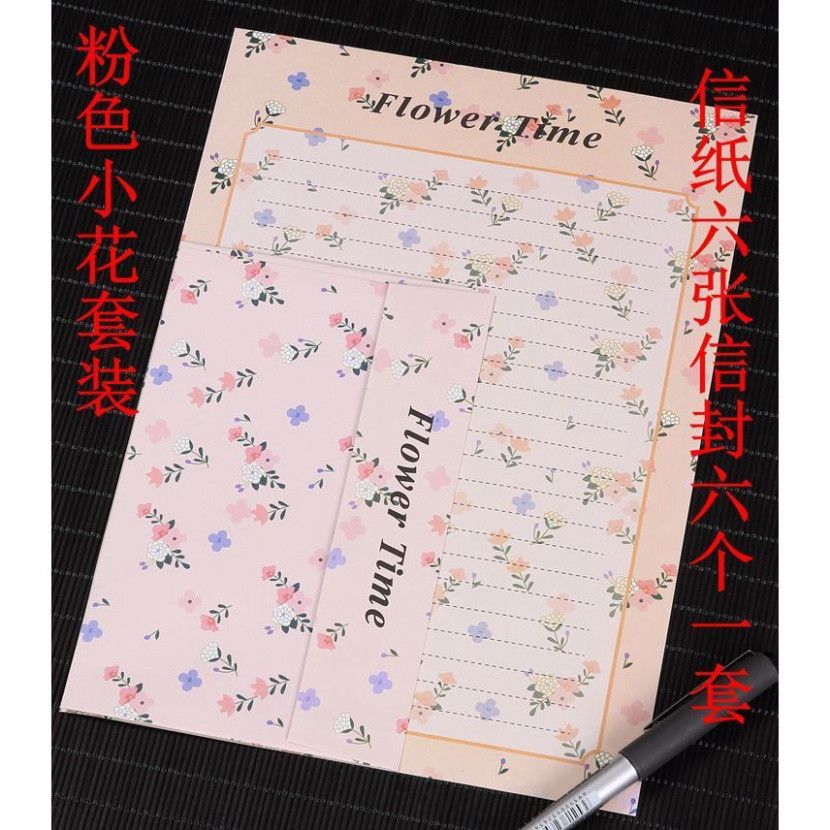 粉色小花套装
信纸六张信封六个一套
Flower Time
Flower Time